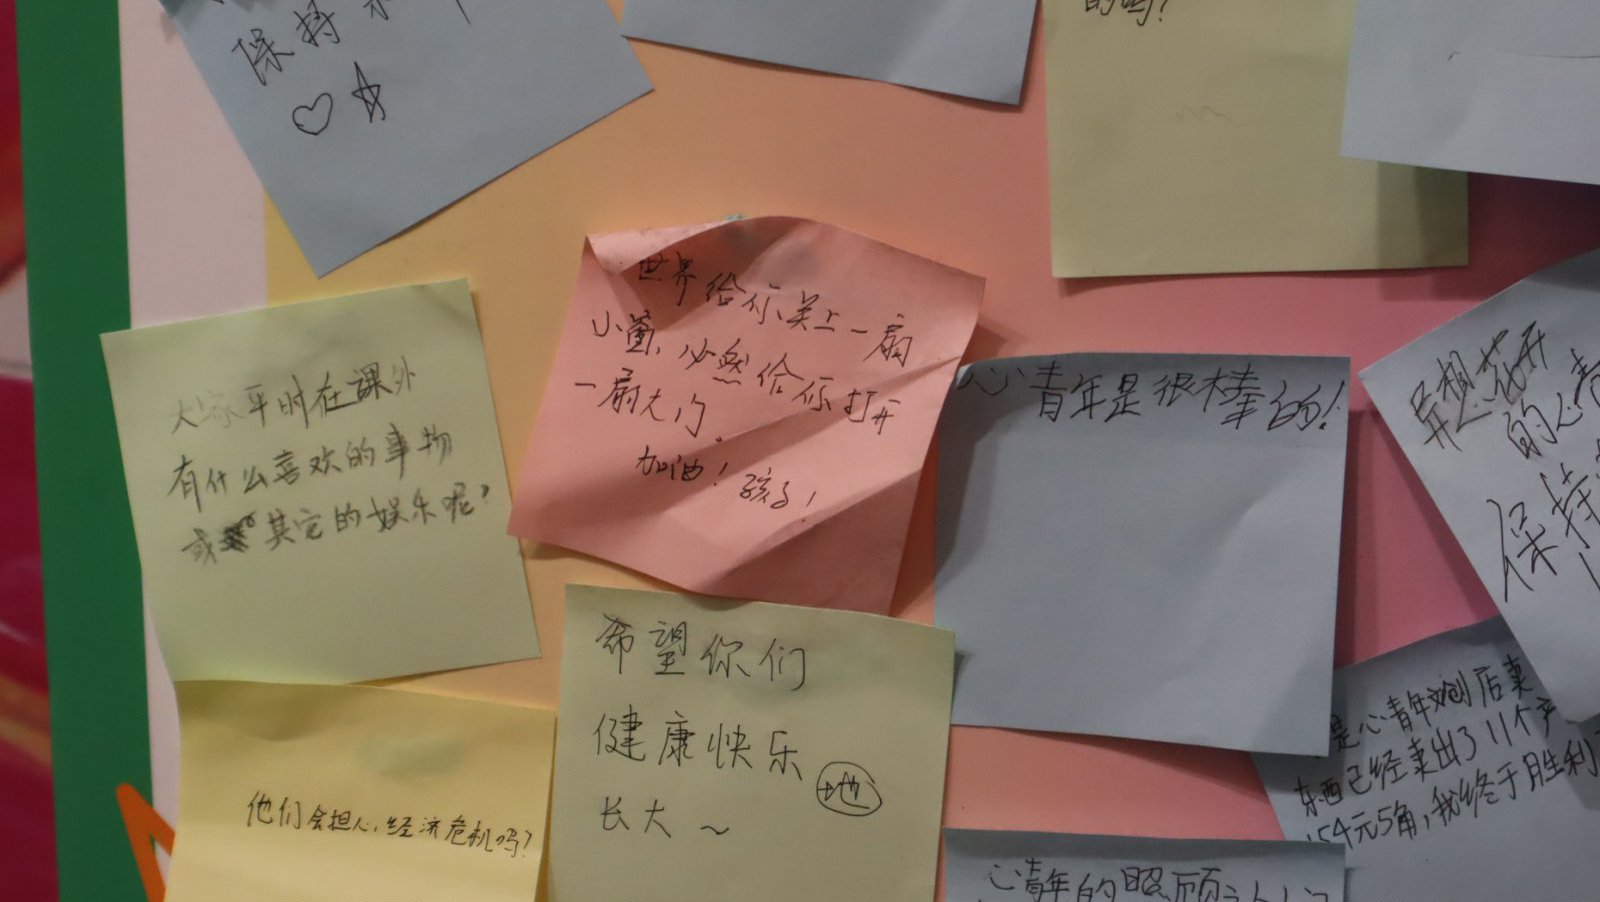 保持
的吗?
世界给你关上一扇
小窗，必然给你打开
一扇大门。
加油！孩子！
大家平时在课外
有什么喜欢的事物
或其它的娱乐呢?
心青年是很棒的!
异想花开
的心青
保持
希望你们
健康快乐
地
长大～
他们会担心，经济危机吗?
是心青年文创店卖
东西已经卖出了11个产
154元5角，我终于胜利
心青年的照顾